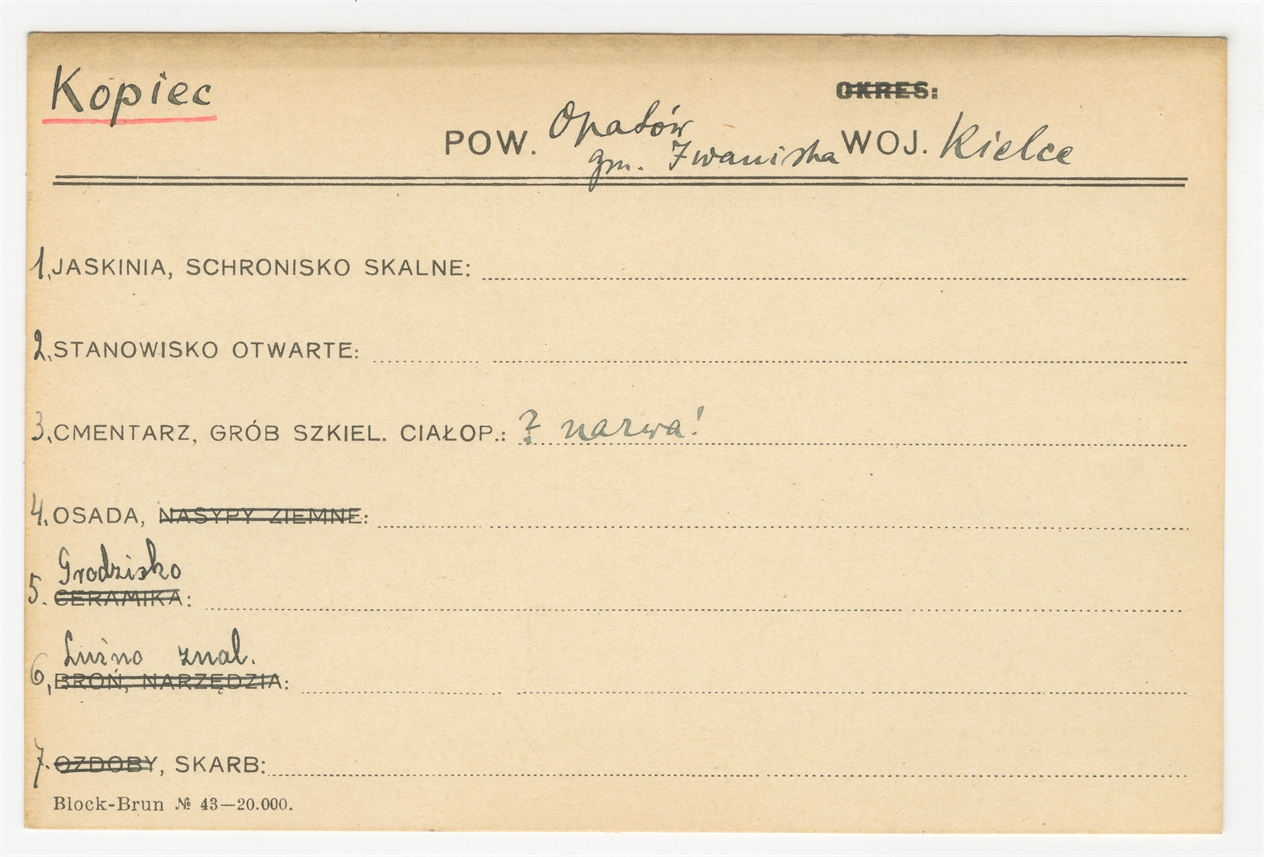 Kopiec
OKRES:
POW. Opatów WOJ. Kielce
gm. Iwaniska
1. JASKINIA, SCHRONISKO SKALNE:
2. STANOWISKO OTWARTE:
3. CMENTARZ, GRÓB SZKIEL. CIAŁOP.: ? nazwa!
4. OSADA, NASYPY ZIEMNE:
Grodzisko
5. CERAMIKA:
Luźno znal.
6. BROŃ, NARZĘDZIA:
7. OZDOBY, SKARB:
Block-Brun № 43—20.000.